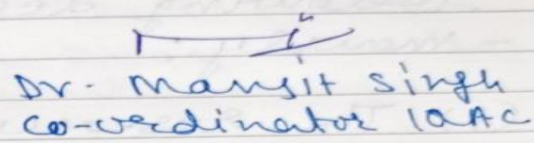 Dr. Manjit Singh
Co-ordinator IQAC